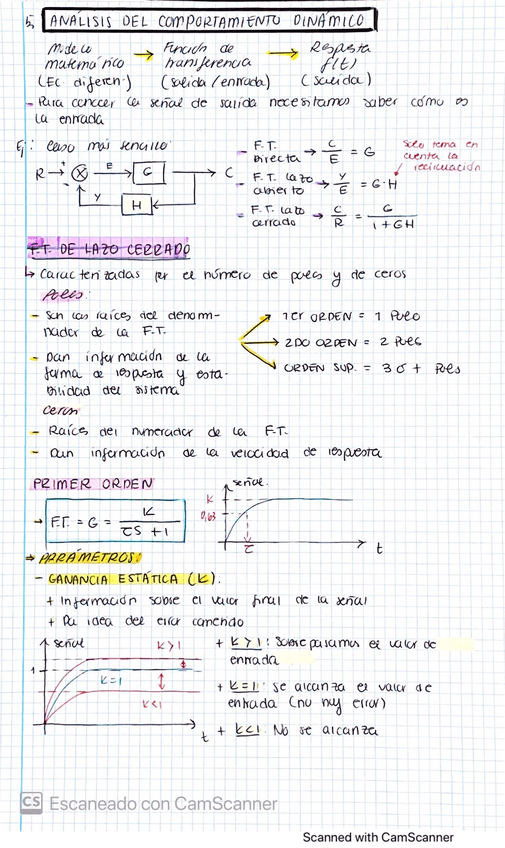 5. ANÁLISIS DEL COMPORTAMIENTO DINÁMICO
Modelo matemático → Función de transferencia → Respuesta f(t)
(EC diferen.) (salida/entrada) (salida)
- Para conocer la señal de salida necesitamos saber cómo es
la entrada
Ej: Caso más sencillo:
R → + E → G → C
- Y H
- F.T. Directa → C/E = G
- F.T. lazo abierto → Y/E = G·H
Solo tema en
cuenta la
recirculación
- F.T. lazo cerrado → C/R = G/1+GH
F.T. DE LAZO CERRADO
↳ Caracterizadas por el número de polos y de ceros
Polos:
- Son las raíces del denomi-
nador de la F.T.
- Dan información de la
forma de respuesta y esta-
bilidad del sistema
1er ORDEN = 1 Polo
2DO ORDEN = 2 Polos
ORDEN SUP. = 3 o + Polos
Ceros:
- Raíces del numerador de la F.T.
- Dan información de la velocidad de respuesta
PRIMER ORDEN
→ F.T. = G = K/τs+1
señal.
K
0,63
τ
t
⇒ PARÁMETROS:
- GANANCIA ESTÁTICA (K).
+ Información sobre el valor final de la señal
+ Da idea del error cometido
señal
1
K>1
K=1
K<1
t
+ K>1: Sobrepasamos el valor de
entrada
+ K=1: se alcanza el valor de
entrada (no hay error)
+ K<1: No se alcanza
CS Escaneado con CamScanner
Scanned with CamScanner